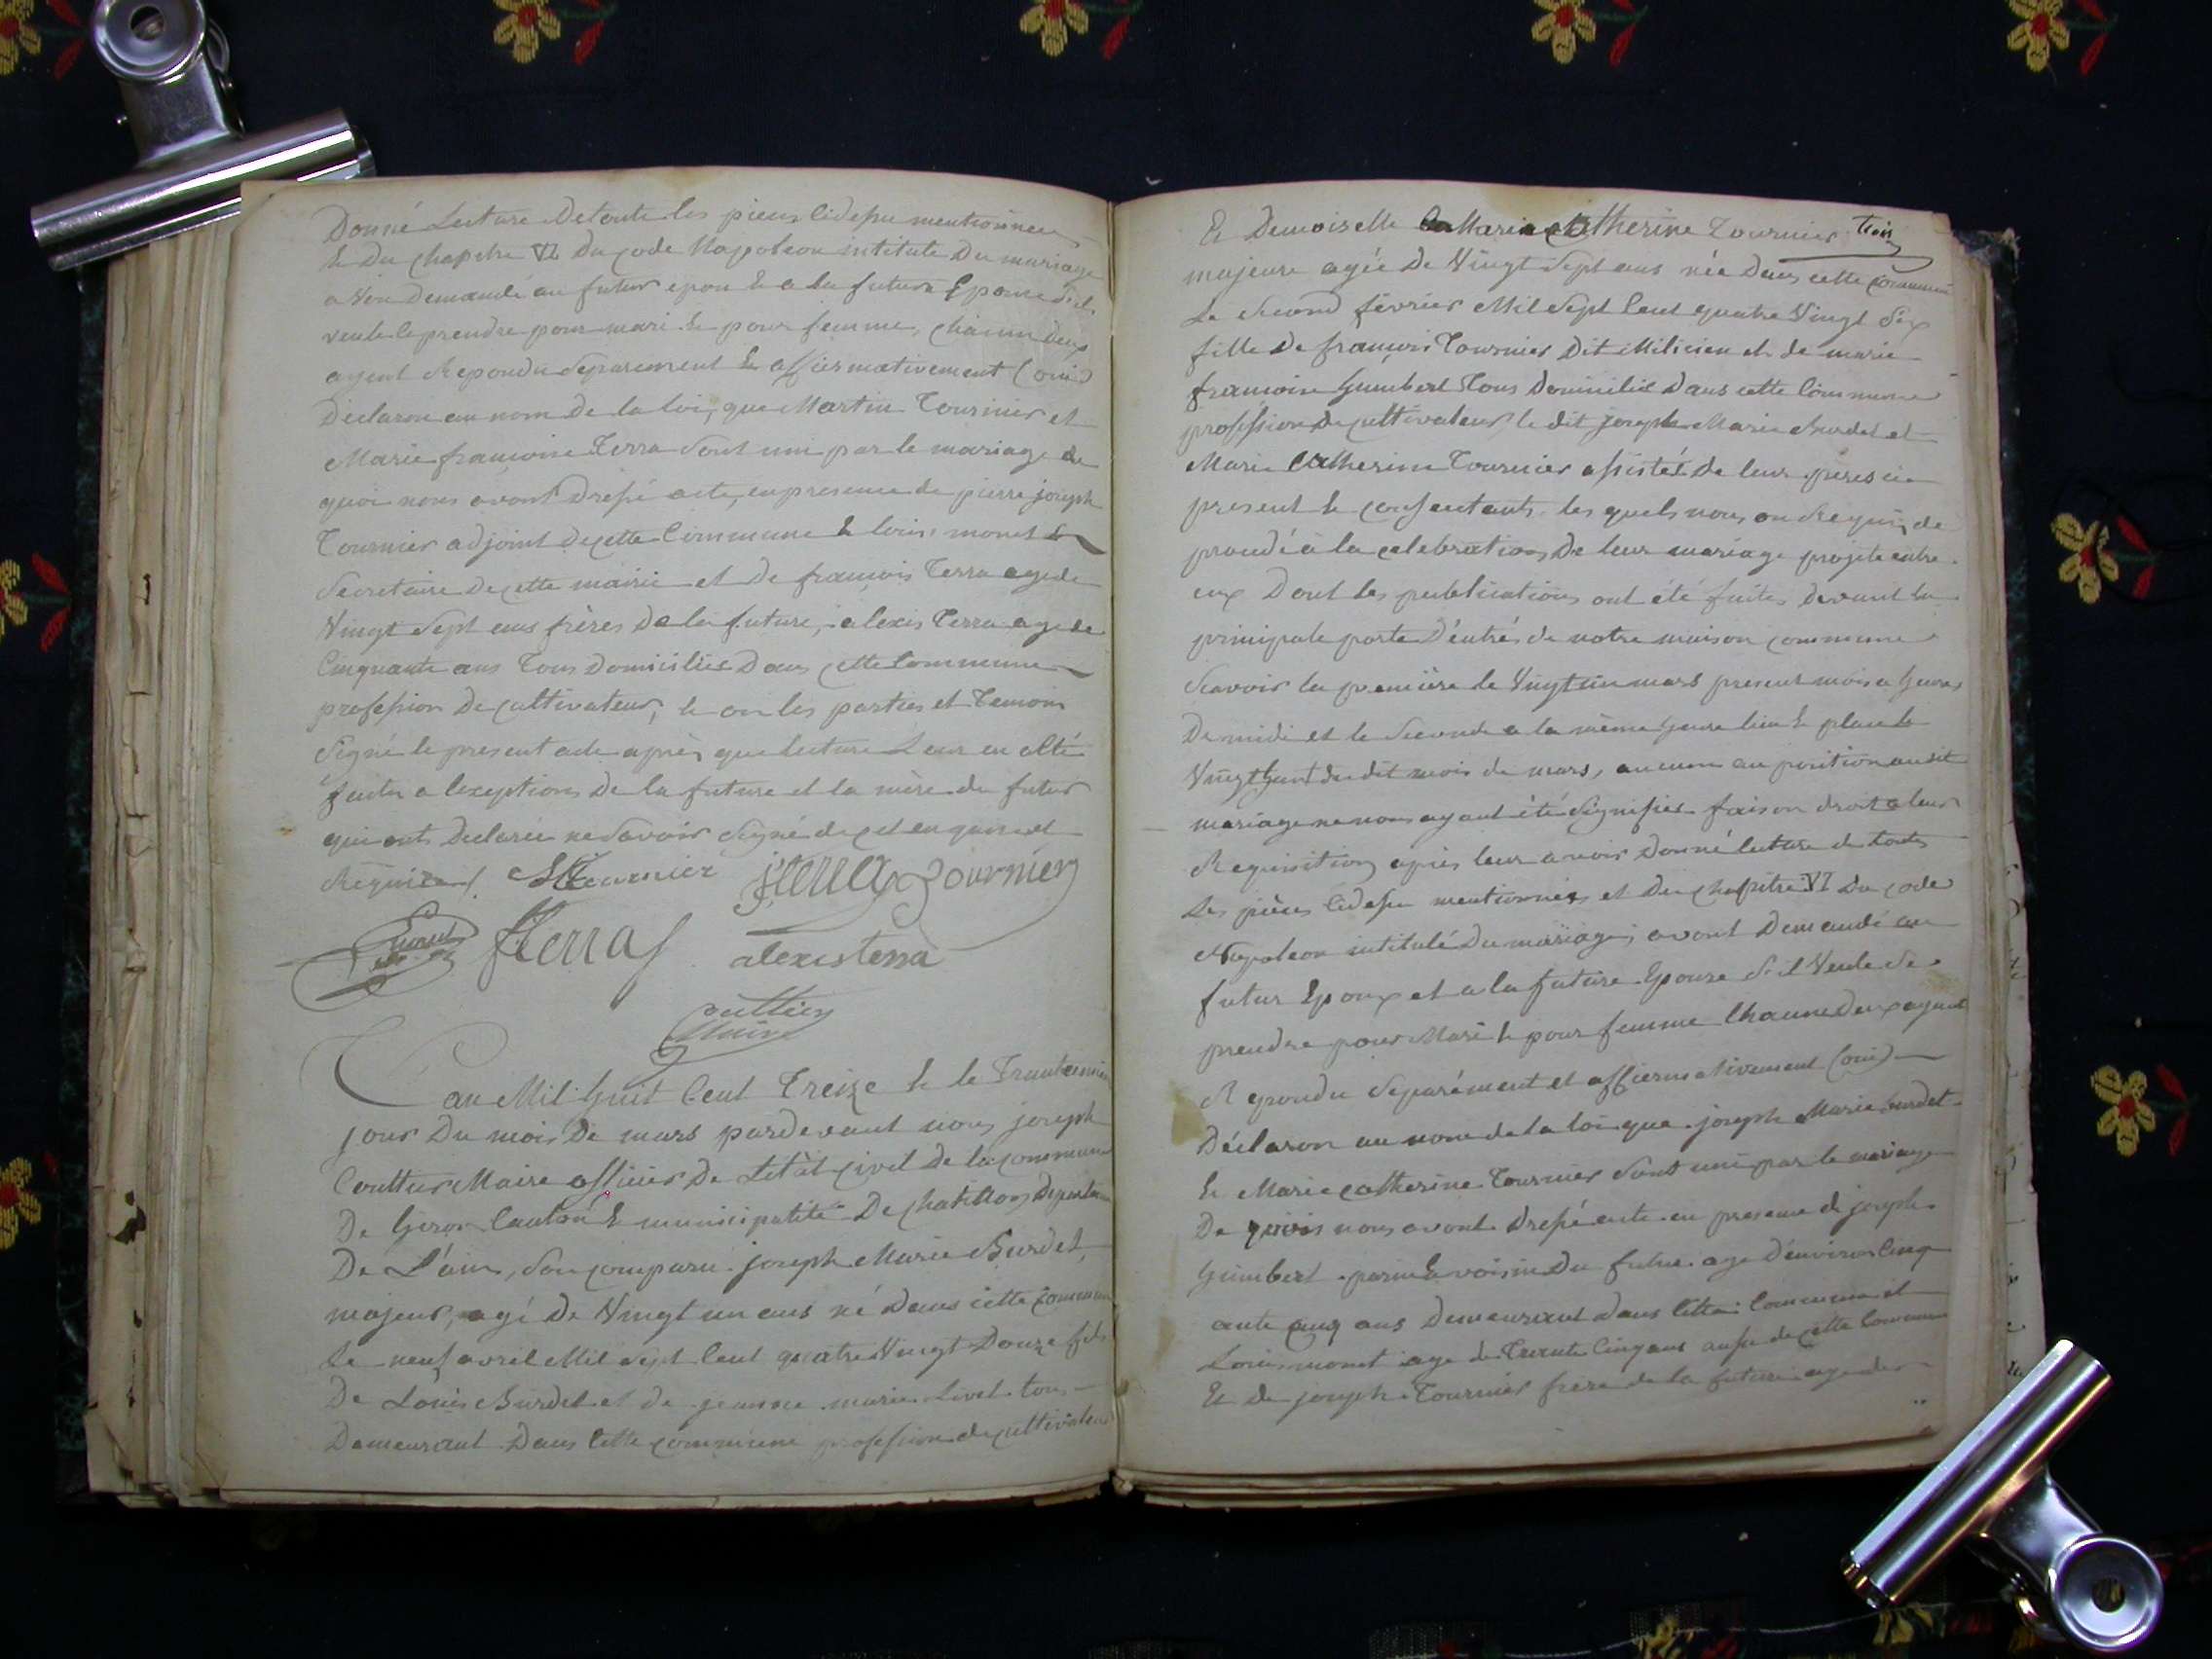 Donné Lecture de toute les pieces cidessu mentionnees
& du chapitre VI du code Napoleon intitulé du mariage
avon demandé au futur epou & a la future Epouse s'il
veule le prendre pour mari & pour femme, chacun deux
ayent Repondu Separement & affiermativement (oui)
Déclaron au nom de la loi, que Martin Tournier et
Marie françoise Terra sont uni par le mariage de
quoi nous avont Dressé acte, en presence de pierre joseph
Tournier adjoint de cette Commune & louis monet
Secretaire de cette mairie et de françois Terra age de
Vingt Sept ans frères de la future, alexis Terra age de
Cinquante ans Tous Domiciliés Dans cette Commune
profession de cultivateur, & on les parties et Temoin
Signé le present acte après que lecture Leur en a été
faite a lexeption de la future et la mère du futur
qui ont Declarée ne savoir Signé de ce enquis et
Requise /. Tournier jterra Tournier
monet fterra alexis terra
Coutturier
Maire
L'an Mil huit Cent Treize & le Trente unie
jour Du mois De mars pardevant nous joseph
Couttur Maire officier De Létat civil De la commune
De Giron Canton & municipalité De chatillon Departem
De L'ain, son comparu joseph Marie Burdet,
majeur, agé De Vingt un ans né Dans cette commune
Le neuf avril Mil Sept Cent quatre Vingt Douze fils
De Louis Burdet et de jeanne marie Livet tous
Demeurant Dans Cette commune profession de cultivateur
Et Demoiselle Marie Catherine Tournier
majeure agée De Vingt Sept ans née Dans cette commune
Le Second février Mil Sept Cent quatre Vingt Six
fille De françois Tournier Dit Milicien et de marie
françoise Gumbert Tous Domicilié Dans cette Commune
profession de cultivateur, le dit joseph Marie Burdet et
Marie Catherine Tournier assistés De leur peres ici
present & consentants les quels nous on Requis de
procudé à la celebration De leur mariage projeté entre
eux Dont les publications ont été faites devant la
principale porte D'entrés de notre maison commune
Scavoir la première le Vingt un mars present mois a heure
De midi et le Seconde a la même heure lieu & place le
Vingt huit du dit mois de mars, aucune auposition au dit
mariage ne nous ayant été Signifier faison droit a leur
Requisition après leur avoir Donné lecture de toute
Les pièces Cidessu mentionnées et du chapitre VI Du code
Napoleon intitulé Du mariage, avont Demandé au
futur Epoux et a la future Epouse S'il Veule se
prendre pour Mari & pour femme Chacune Deux ayent
Repondu Separément et affiermativement (oui)
Déclaron au nom de la loi que joseph Marie Burdet
& Marie catherine Tournier sont uni par le mariage
De quoi nous avont dressé acte en presence de joseph
Gumbert voisin Du futur age D'environ Cinq
ante cinq ans Demeurant dans Cette Commune et
Louis monet age de Trente Cinq ans aussi de cette Commune
Et de joseph Tournier frère de la future age de